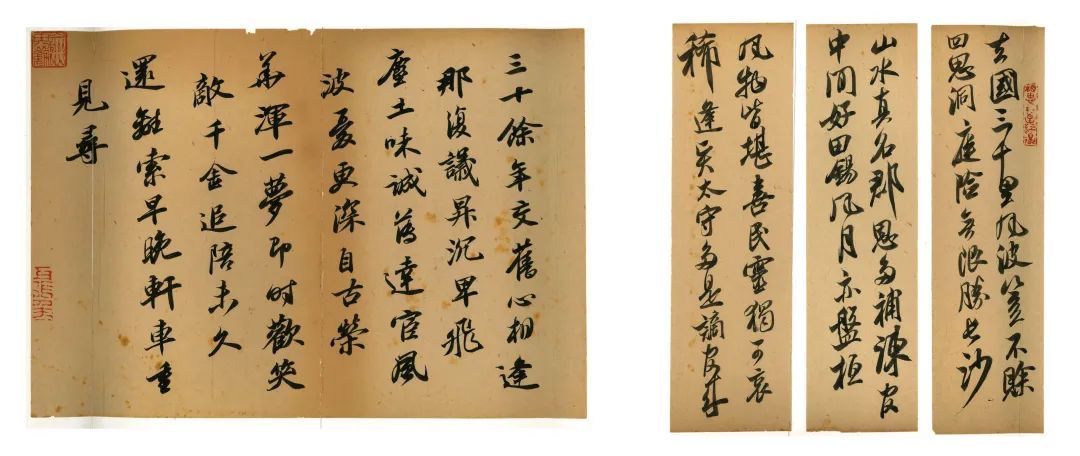 去國三千里風波豈不賒
回思洞庭險無限勝長沙
山水真名郡恩多補諫官
中間好田錫風月亦盤桓
風物皆堪喜民靈獨可哀
稀逢賢太守多是謫官來
三十餘年交舊心相逢
那復議昇沉卑飛
塵土味誠薄達官風
波憂更深自古榮
華渾一夢即時歡笑
敵千金追陪未久
還離索早晚軒車重
見尋